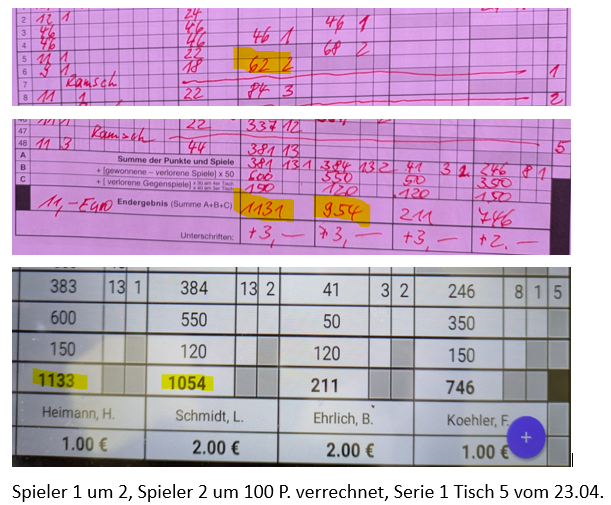 2 12 1 24
3 46 46 46 1 46 1
4 46 46 68 2
5 11 1 22 62 2
6 9 1 18 1
7 Ramsch
8 11 1 22 84 3 2
47 Ramsch 22 337 12
48 11 3 44 381 13 5
A Summe der Punkte und Spiele 381 13 1 384 13 2 41 3 2 246 8 1
B + [gewonnene – verlorene Spiele] x 50 600 550 50 350
C + [ verlorene Gegenspiele] 150 120 120 150
11,- Euro Endergebnis (Summe A+B+C) 1131 954 211 746
Unterschriften: +3,— +3,— +3,— +2.—
383 13 1 384 13 2 41 3 2 246 8 1 5
600 550 50 350
150 120 120 150
1133 1054 211 746
Heimann, H. Schmidt, L. Ehrlich, B. Koehler, F.
1.00 € 2.00 € 2.00 € 1.00 €
+
Spieler 1 um 2, Spieler 2 um 100 P. verrechnet, Serie 1 Tisch 5 vom 23.04.